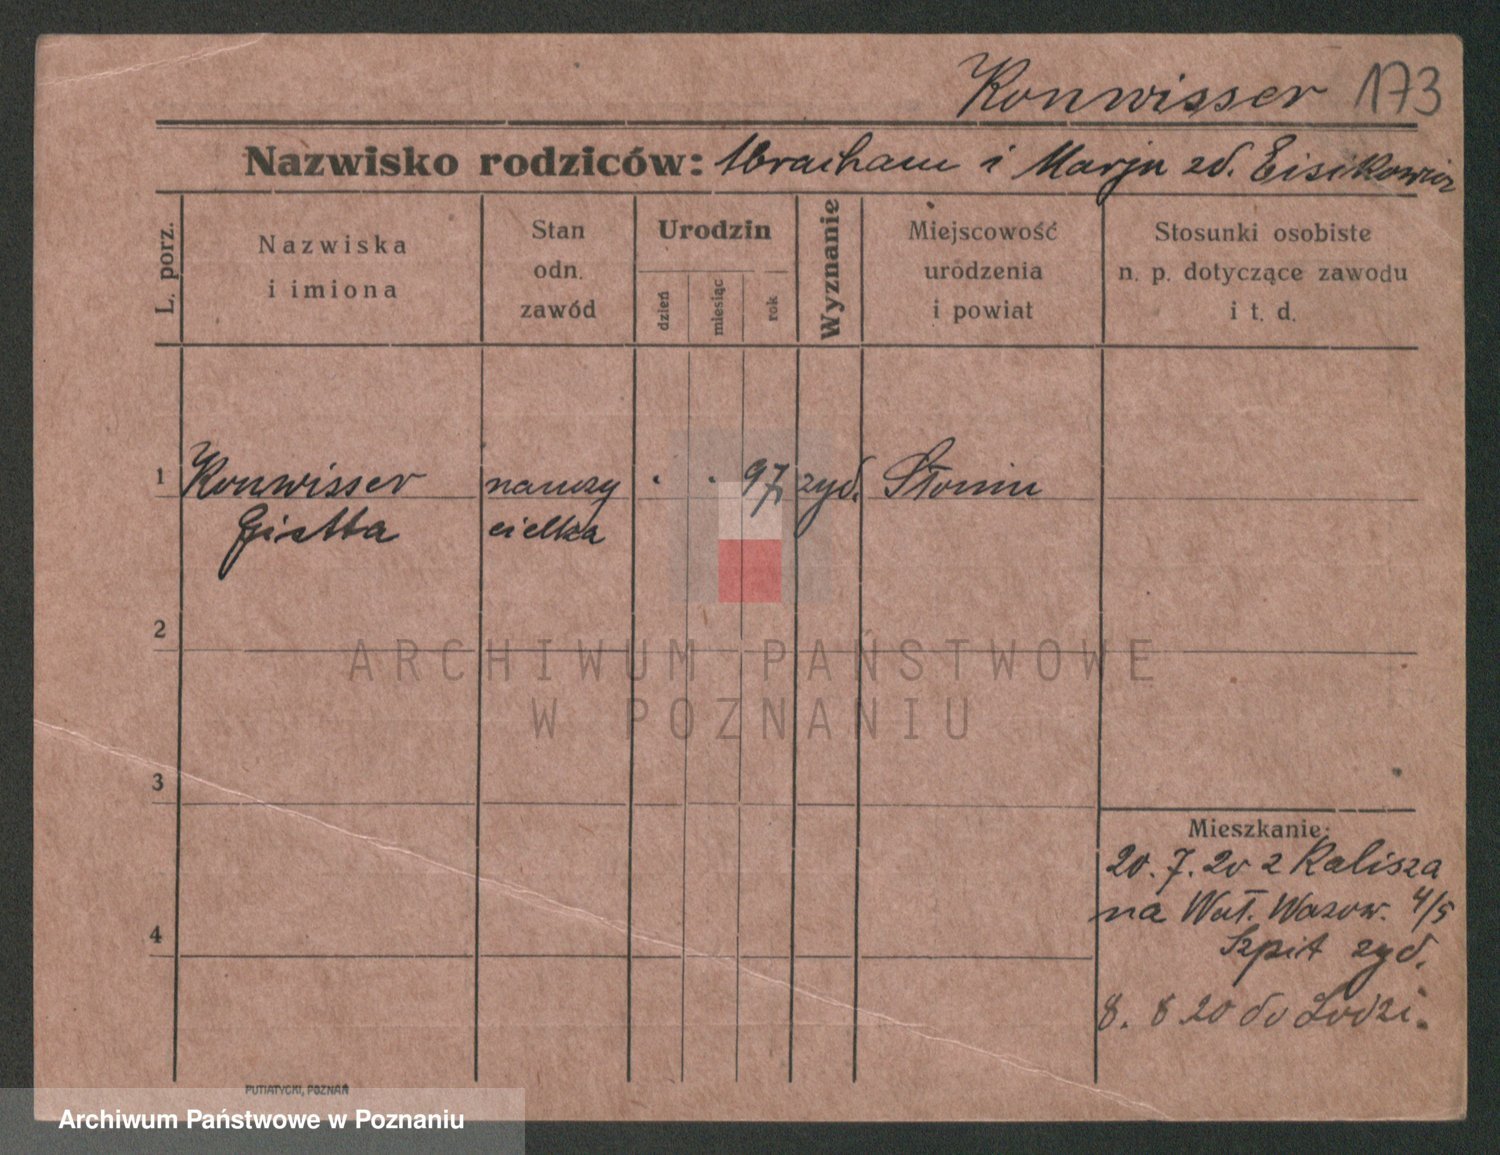 Konwisser 173
Nazwisko rodziców: Abraham i Marja zd. Eisikowicz
L. porz.
Nazwiska
i imiona
Stan
odn.
zawód
Urodzin
dzień
miesiąc
rok
Wyznanie
Miejscowość
urodzenia
i powiat
Stosunki osobiste
n. p. dotyczące zawodu
i t. d.
1 Konwisser nauczy . . 97 żyd. Słonim
Gistta cielka
2
3
4
Mieszkanie:
20. 7. 20 z Kalisza
na Wał. Wazow. 4/5
Szpit żyd.
8. 8 20 do Łodzi.
PUTIATYCKI, POZNAŃ
ARCHIWUM PAŃSTWOWE
W POZNANIU
Archiwum Państwowe w Poznaniu